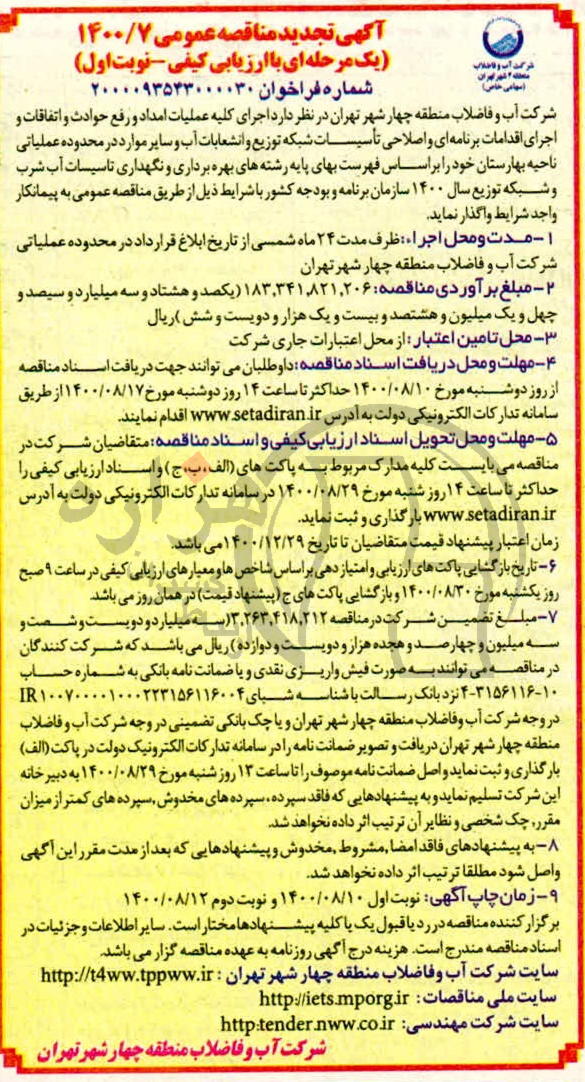 آگهی تجدید مناقصه عمومی ۱۴۰۰/۷
(یک مرحله‌ای با ارزیابی کیفی - نوبت اول)
شماره فراخوان ۲۰۰۰۰۹۳۵۴۳۰۰۰۰۳۰
شرکت آب و فاضلاب
منطقه ۴ شهر تهران
(سهامی خاص)
شرکت آب و فاضلاب منطقه چهار شهر تهران در نظر دارد اجرای کلیه عملیات امداد و رفع حوادث و اتفاقات و
اجرای اقدامات برنامه‌ای و اصلاحی تأسیسات شبکه توزیع و انشعابات آب و سایر موارد در محدوده عملیاتی
ناحیه بهارستان خود را بر اساس فهرست بهای پایه رشته های بهره برداری و نگهداری تاسیسات آب شرب
و شبکه توزیع سال ۱۴۰۰ سازمان برنامه و بودجه کشور با شرایط ذیل از طریق مناقصه عمومی به پیمانکار
واجد شرایط واگذار نماید.
۱- مدت و محل اجراء: ظرف مدت ۲۴ ماه شمسی از تاریخ ابلاغ قرارداد در محدوده عملیاتی
شرکت آب و فاضلاب منطقه چهار شهر تهران
۲- مبلغ برآوردی مناقصه: ۱۸۳,۳۴۱,۸۲۱,۲۰۶ (یکصد و هشتاد و سه میلیارد و سیصد و
چهل و یک میلیون و هشتصد و بیست و یک هزار و دویست و شش) ریال
۳- محل تامین اعتبار: از محل اعتبارات جاری شرکت
۴- مهلت و محل دریافت اسناد مناقصه: داوطلبان می توانند جهت دریافت اسناد مناقصه
از روز دوشنبه مورخ ۱۴۰۰/۰۸/۱۰ حداکثر تا ساعت ۱۴ روز دوشنبه مورخ ۱۴۰۰/۰۸/۱۷ از طریق
سامانه تدارکات الکترونیکی دولت به آدرس www.setadiran.ir اقدام نمایند.
۵- مهلت و محل تحویل اسناد ارزیابی کیفی و اسناد مناقصه: متقاضیان شرکت در
مناقصه می بایست کلیه مدارک مربوط به پاکت های (الف، ب، ج) و اسناد ارزیابی کیفی را
حداکثر تا ساعت ۱۴ روز شنبه مورخ ۱۴۰۰/۰۸/۲۹ در سامانه تدارکات الکترونیکی دولت به آدرس
www.setadiran.ir بارگذاری و ثبت نماید.
زمان اعتبار پیشنهاد قیمت متقاضیان تا تاریخ ۱۴۰۰/۱۲/۲۹ می باشد.
۶- تاریخ بازگشایی پاکت های ارزیابی و امتیازدهی بر اساس شاخص ها و معیارهای ارزیابی کیفی در ساعت ۹ صبح
روز یکشنبه مورخ ۱۴۰۰/۰۸/۳۰ و بازگشایی پاکت های ج (پیشنهاد قیمت) در همان روز می باشد.
۷- مبلغ تضمین شرکت در مناقصه ۳,۲۶۳,۴۱۸,۲۱۲ (سه میلیارد و دویست و شصت و
سه میلیون و چهارصد و هجده هزار و دویست و دوازده) ریال می باشد که شرکت کنندگان
در مناقصه می توانند به صورت فیش واریزی نقدی و یا ضمانت نامه بانکی به شماره حساب
۴-۳۱۵۶۱۱۶-۱۰ نزد بانک رسالت با شناسه شبای IR۱۰۰۷۰۰۰۰۱۰۰۰۲۲۳۱۵۶۱۱۶۰۰۴
در وجه شرکت آب و فاضلاب منطقه چهار شهر تهران و یا چک بانکی تضمینی در وجه شرکت آب و فاضلاب
منطقه چهار شهر تهران دریافت و تصویر ضمانت نامه را در سامانه تدارکات الکترونیک دولت در پاکت (الف)
بارگذاری و ثبت نماید و اصل ضمانت نامه موصوف را تا ساعت ۱۳ روز شنبه مورخ ۱۴۰۰/۰۸/۲۹ به دبیرخانه
این شرکت تسلیم نماید و به پیشنهادهایی که فاقد سپرده، سپرده های مخدوش، سپرده های کمتر از میزان
مقرر، چک شخصی و نظایر آن ترتیب اثر داده نخواهد شد.
۸- به پیشنهادهای فاقد امضا، مشروط، مخدوش و پیشنهادهایی که بعد از مدت مقرر این آگهی
واصل شود مطلقا ترتیب اثر داده نخواهد شد.
۹- زمان چاپ آگهی: نوبت اول ۱۴۰۰/۰۸/۱۰ و نوبت دوم ۱۴۰۰/۰۸/۱۲
برگزار کننده مناقصه در رد یا قبول یک یا کلیه پیشنهادها مختار است. سایر اطلاعات و جزئیات در
اسناد مناقصه مندرج است. هزینه درج آگهی روزنامه به عهده مناقصه گزار می باشد.
سایت شرکت آب و فاضلاب منطقه چهار شهر تهران: http://t4ww.tppww.ir
سایت ملی مناقصات: http://iets.mporg.ir
سایت شرکت مهندسی: http:tender.nww.co.ir
شرکت آب و فاضلاب منطقه چهار شهر تهران
هزاره